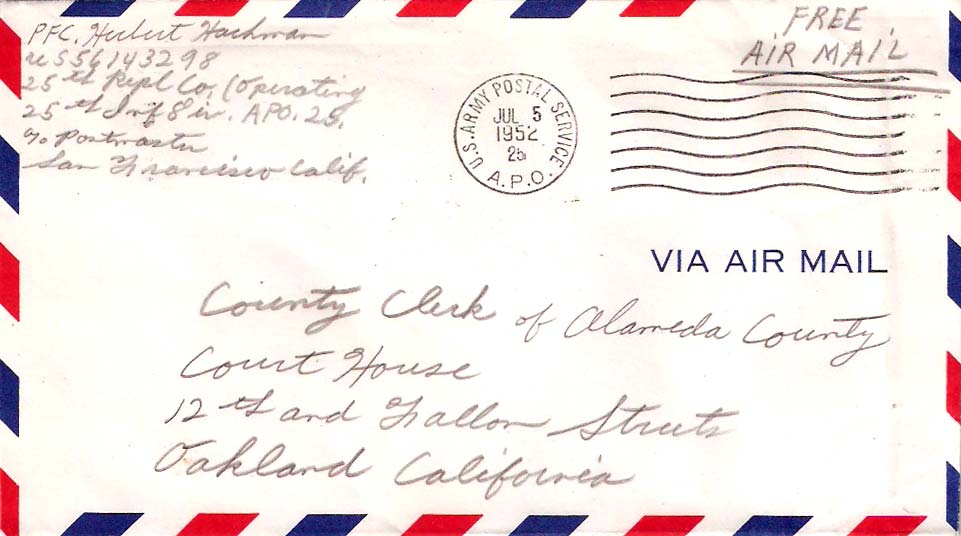 PFC. Herbert Hachman
US56143298
25th Repl Co. (Operating
25th Inf Div. APO. 25.
℅ Postmaster
San Francisco Calif.
FREE
AIR MAIL
U.S. ARMY POSTAL SERVICE
JUL 5
1952
25
A.P.O.
VIA AIR MAIL
County Clerk of Alameda County
Court House
12th and Fallon Streets
Oakland California